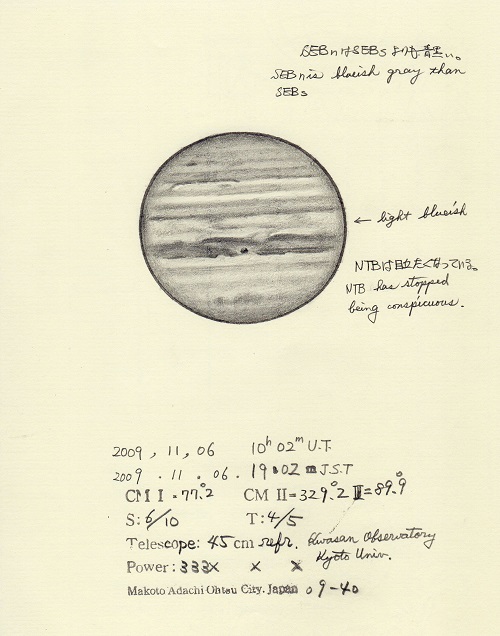 SEBnはSEBsよりも青黒い。
SEBn is blueish gray than
SEBs
← light blueish
NTBは目立たくなっている。
NTB has stopped
being conspicuous.
2009, 11, 06 10h 02m U.T.
2009. 11. 06. 19:02 m J.S.T
CM I = 77.°2 CM II = 329.°2 III = 89.°9
S: 6/10 T: 4/5
Telescope: 45 cm refr. Kwasan Observatory
Kyoto Univ.
Power: 333x x x
Makoto Adachi Ohtsu City. Japan 09-40